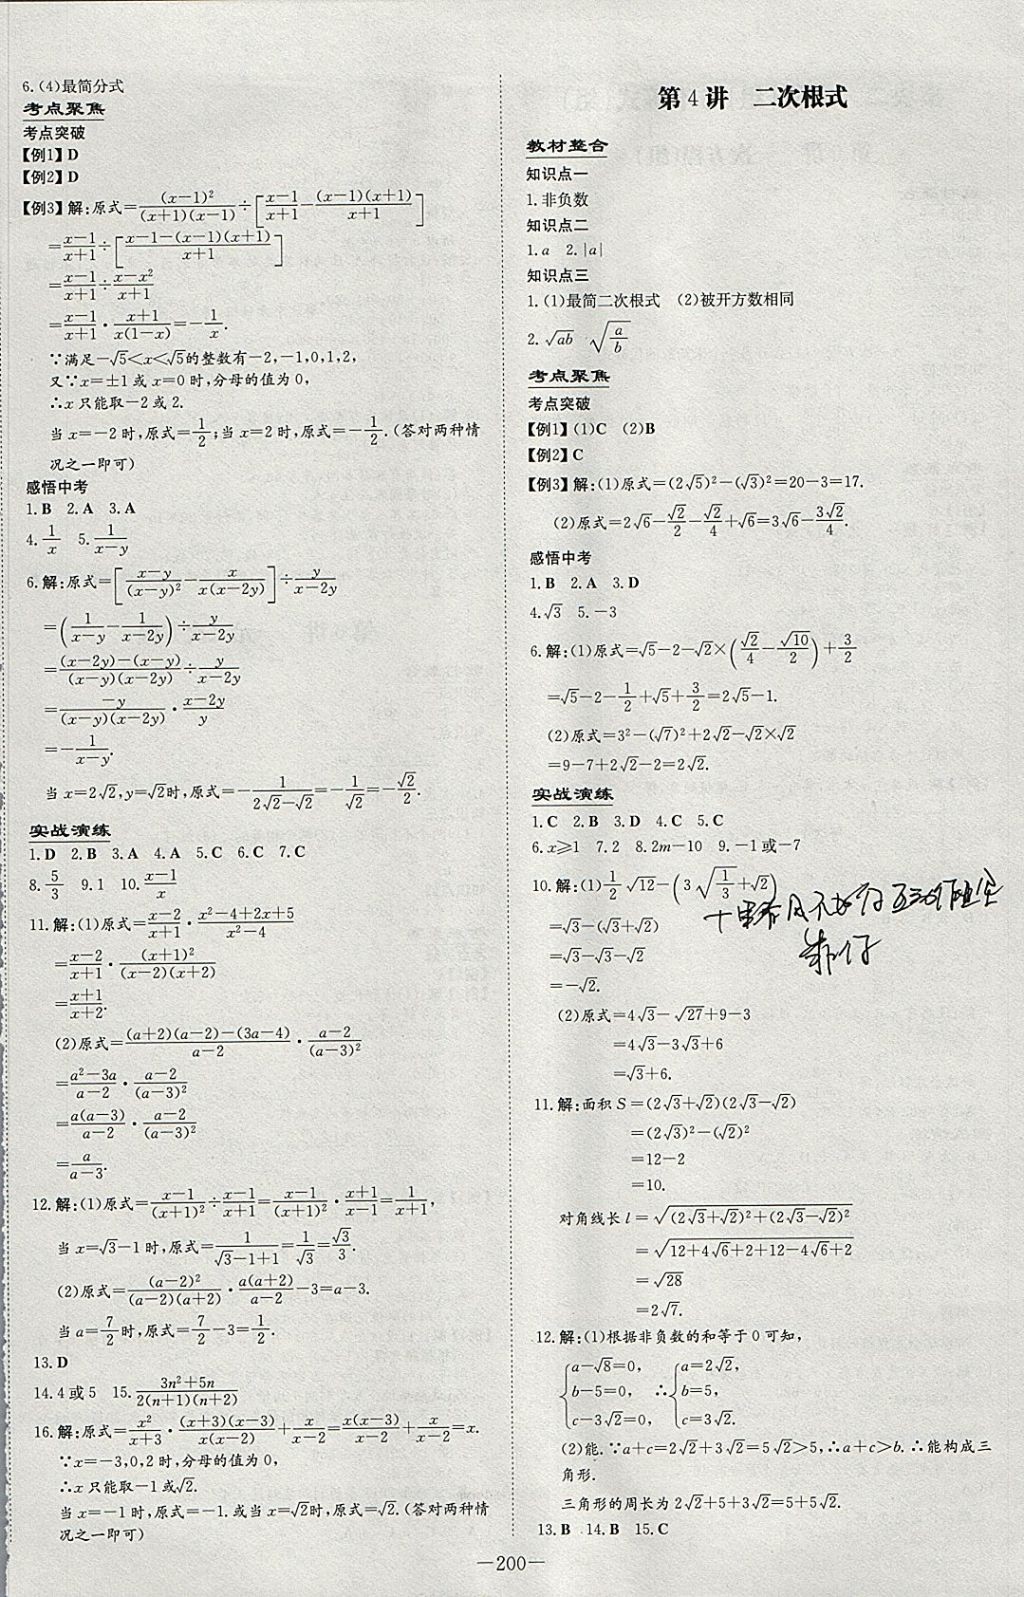 6.(4)最简分式
考点聚焦
考点突破
【例1】D
【例2】D
【例3】解:原式=(x−1)²/((x+1)(x−1))÷[(x−1)/(x+1)−(x−1)(x+1)/(x+1)]
=(x−1)/(x+1)÷[(x−1−(x−1)(x+1))/(x+1)]
=(x−1)/(x+1)÷(x−x²)/(x+1)
=(x−1)/(x+1)·(x+1)/(x(1−x))=−1/x.
∵满足−√5<x<√5的整数有−2,−1,0,1,2,
又∵x=±1或x=0时,分母的值为0,
∴x只能取−2或2.
当x=−2时,原式=1/2;当x=2时,原式=−1/2.(答对两种情
况之一即可)
感悟中考
1.B 2.A 3.A
4.1/x 5.1/(x−y)
6.解:原式=[(x−y)/(x−y)²−x/(x(x−2y))]÷y/(x−2y)
=(1/(x−y)−1/(x−2y))÷y/(x−2y)
=((x−2y)−(x−y))/((x−y)(x−2y))÷y/(x−2y)
=−y/((x−y)(x−2y))·(x−2y)/y
=−1/(x−y).
当x=2√2,y=√2时,原式=−1/(2√2−√2)=−1/√2=−√2/2.
实战演练
1.D 2.B 3.A 4.A 5.C 6.C 7.C
8.5/3 9.1 10.(x−1)/x
11.解:(1)原式=(x−2)/(x+1)·(x²−4+2x+5)/(x²−4)
=(x−2)/(x+1)·(x+1)²/((x−2)(x+2))
=(x+1)/(x+2).
(2)原式=((a+2)(a−2)−(3a−4))/(a−2)·(a−2)/(a−3)²
=(a²−3a)/(a−2)·(a−2)/(a−3)²
=a(a−3)/(a−2)·(a−2)/(a−3)²
=a/(a−3).
12.解:(1)原式=(x−1)/(x+1)²÷(x−1)/(x+1)=(x−1)/(x+1)²·(x+1)/(x−1)=1/(x+1),
当x=√3−1时,原式=1/(√3−1+1)=1/√3=√3/3.
(2)原式=(a−2)²/((a−2)(a+2))·a(a+2)/(a−2)−3=a−3.
当a=7/2时,原式=7/2−3=1/2.
13.D
14.4或5 15.(3n²+5n)/(2(n+1)(n+2))
16.解:原式=x²/(x+3)·(x+3)(x−3)/(x(x−2))+x/(x−2)=x(x−3)/(x−2)+x/(x−2)=x.
∵x=−3,0,2时,分母的值为0,
∴x只能取−1或√2.
当x=−1时,原式=−1.或当x=√2时,原式=√2.(答对两种情
况之一即可)
第4讲 二次根式
教材整合
知识点一
1.非负数
知识点二
1.a 2.|a|
知识点三
1.(1)最简二次根式 (2)被开方数相同
2.√ab √(a/b)
考点聚焦
考点突破
【例1】(1)C (2)B
【例2】C
【例3】解:(1)原式=(2√5)²−(√3)²=20−3=17.
(2)原式=2√6−√2/2−√2/4+√6=3√6−3√2/4.
感悟中考
1.B 2.A 3.D
4.√3 5.−3
6.解:(1)原式=√5−2−√2×(√2/4−√10/2)+3/2
=√5−2−1/2+√5+3/2=2√5−1.
(2)原式=3²−(√7)²+2√2−√2×√2
=9−7+2√2−2=2√2.
实战演练
1.C 2.B 3.D 4.C 5.C
6.x⩾1 7.2 8.2m−10 9.−1或−7
10.解:(1)1/2√12−(3√(1/3)+√2)
=√3−(√3+√2)
=√3−√3−√2
=−√2.
(2)原式=4√3−√27+9−3
=4√3−3√3+6
=√3+6.
11.解:面积S=(2√3+√2)(2√3−√2)
=(2√3)²−(√2)²
=12−2
=10.
对角线长l=√((2√3+√2)²+(2√3−√2)²)
=√(12+4√6+2+12−4√6+2)
=√28
=2√7.
12.解:(1)根据非负数的和等于0可知,
{a−√8=0, {a=2√2,
{b−5=0, ∴{b=5,
{c−3√2=0, {c=3√2.
(2)能.∵a+c=2√2+3√2=5√2>5,∴a+c>b.∴能构成三
角形.
三角形的周长为2√2+5+3√2=5+5√2.
13.B 14.B 15.C
—200—